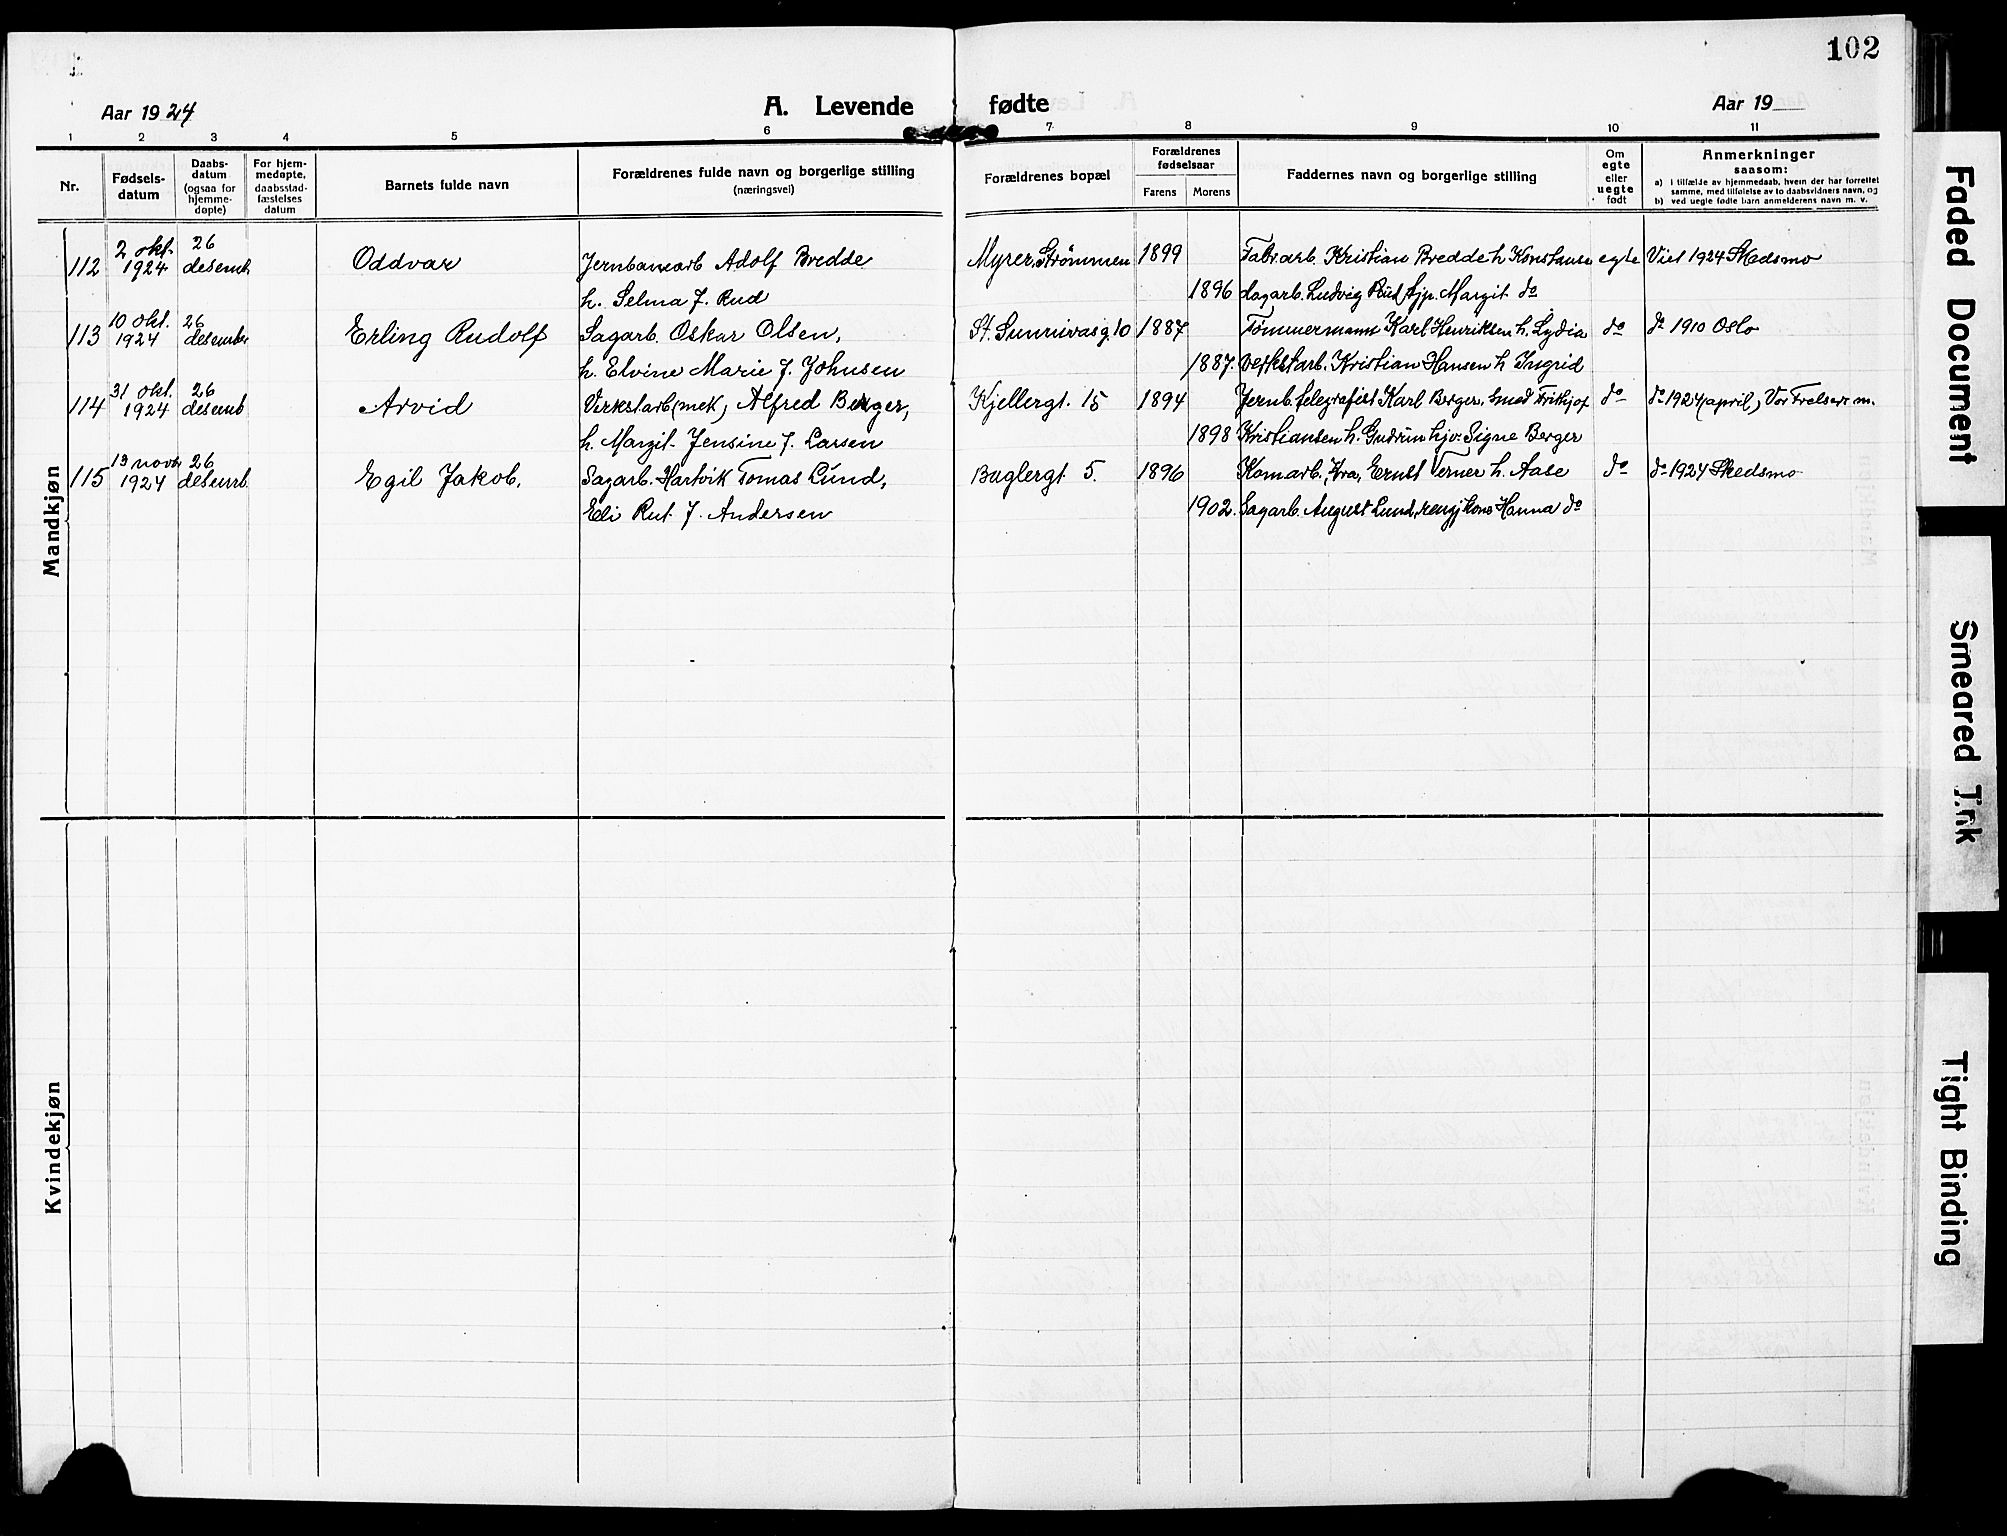 102
Aar 1924
A. Levende fødte
Aar 19
1 2 3 4 5 6 7 8 9 10 11
Nr.
Fødsels-
datum
Daabs-
datum
(ogsaa for
hjemme-
døpte)
For hjem-
medøpte,
daabsstad-
fæstelses
datum
Barnets fulde navn
Forældrenes fulde navn og borgerlige stilling
(næringsvei)
Forældrenes bopæl
Forældrenes
fødselsaar
Farens Morens
Faddernes navn og borgerlige stilling
Om
egte
eller
uegte
født
Anmerkninger
saasom:
a) i tilfælde av hjemmedaab, hvem der har forrettet
samme, med tilføielse av to daabsvidners navn, og
b) ved uegte fødte barn anmelderens navn m. v.
Mandkjøn
112 2 okt. 1924 26 desemb. Oddvar Jernbanearb Adolf Bredde Myrer, Strømmen 1899 Fabr.arb. Kristian Bredde h Konstanse egte Viet 1924 Skedsmo
h. Selma f. Rud 1896 Sagarb. Ludvig Rud tjp. Margit do
113 10 okt. 1924 26 desember Erling Rudolf Sagarb. Oskar Olsen, St. Sunnivasg. 10 1887 Tømmermann Karl Henriksen h. Lydia do do 1910 Oslo
h. Elvine Marie f. Johnsen 1887. Verkstarb. Kristian Hansen h Ingrid
114 31 okt. 1924 26 desemb Arvid Verkstarb (mek) Alfred Berger, Kjellergt. 15 1894 Jernb. telegrafist Karl Berger, smed Frithjof do do 1924 (april) Vor Frelsers m.
h. Margit Jensine f. Larsen 1898 Kristiansen h. Gudrun hjv. Signe Berger
115 13 novbr 1924 26 desemb. Egil Jakob. Sagarb. Hartvik Tomas Lund, Baglergt 5. 1896 Komarb. Kra, Ernst Verner h. Aase do do 1924 Skedsmo
Eli Rut f. Andersen 1902. Sagarb. August Lund, Hanna do
Kvindekjøn
Faded Document
Smeared Ink
Tight Binding